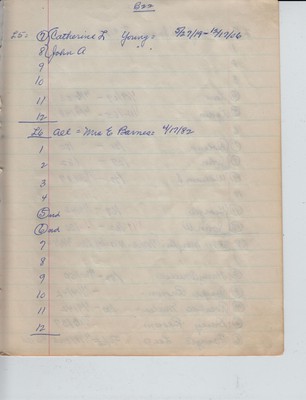 B22
25 = (7) Catherine L Young = 5/27/19 - 12/17/06
8 John A "
9
10
11
12
26 All = Mrs E Barness 4/17/92
1
2
3
4
(5) end
(6) end
7
8
9
10
11
12